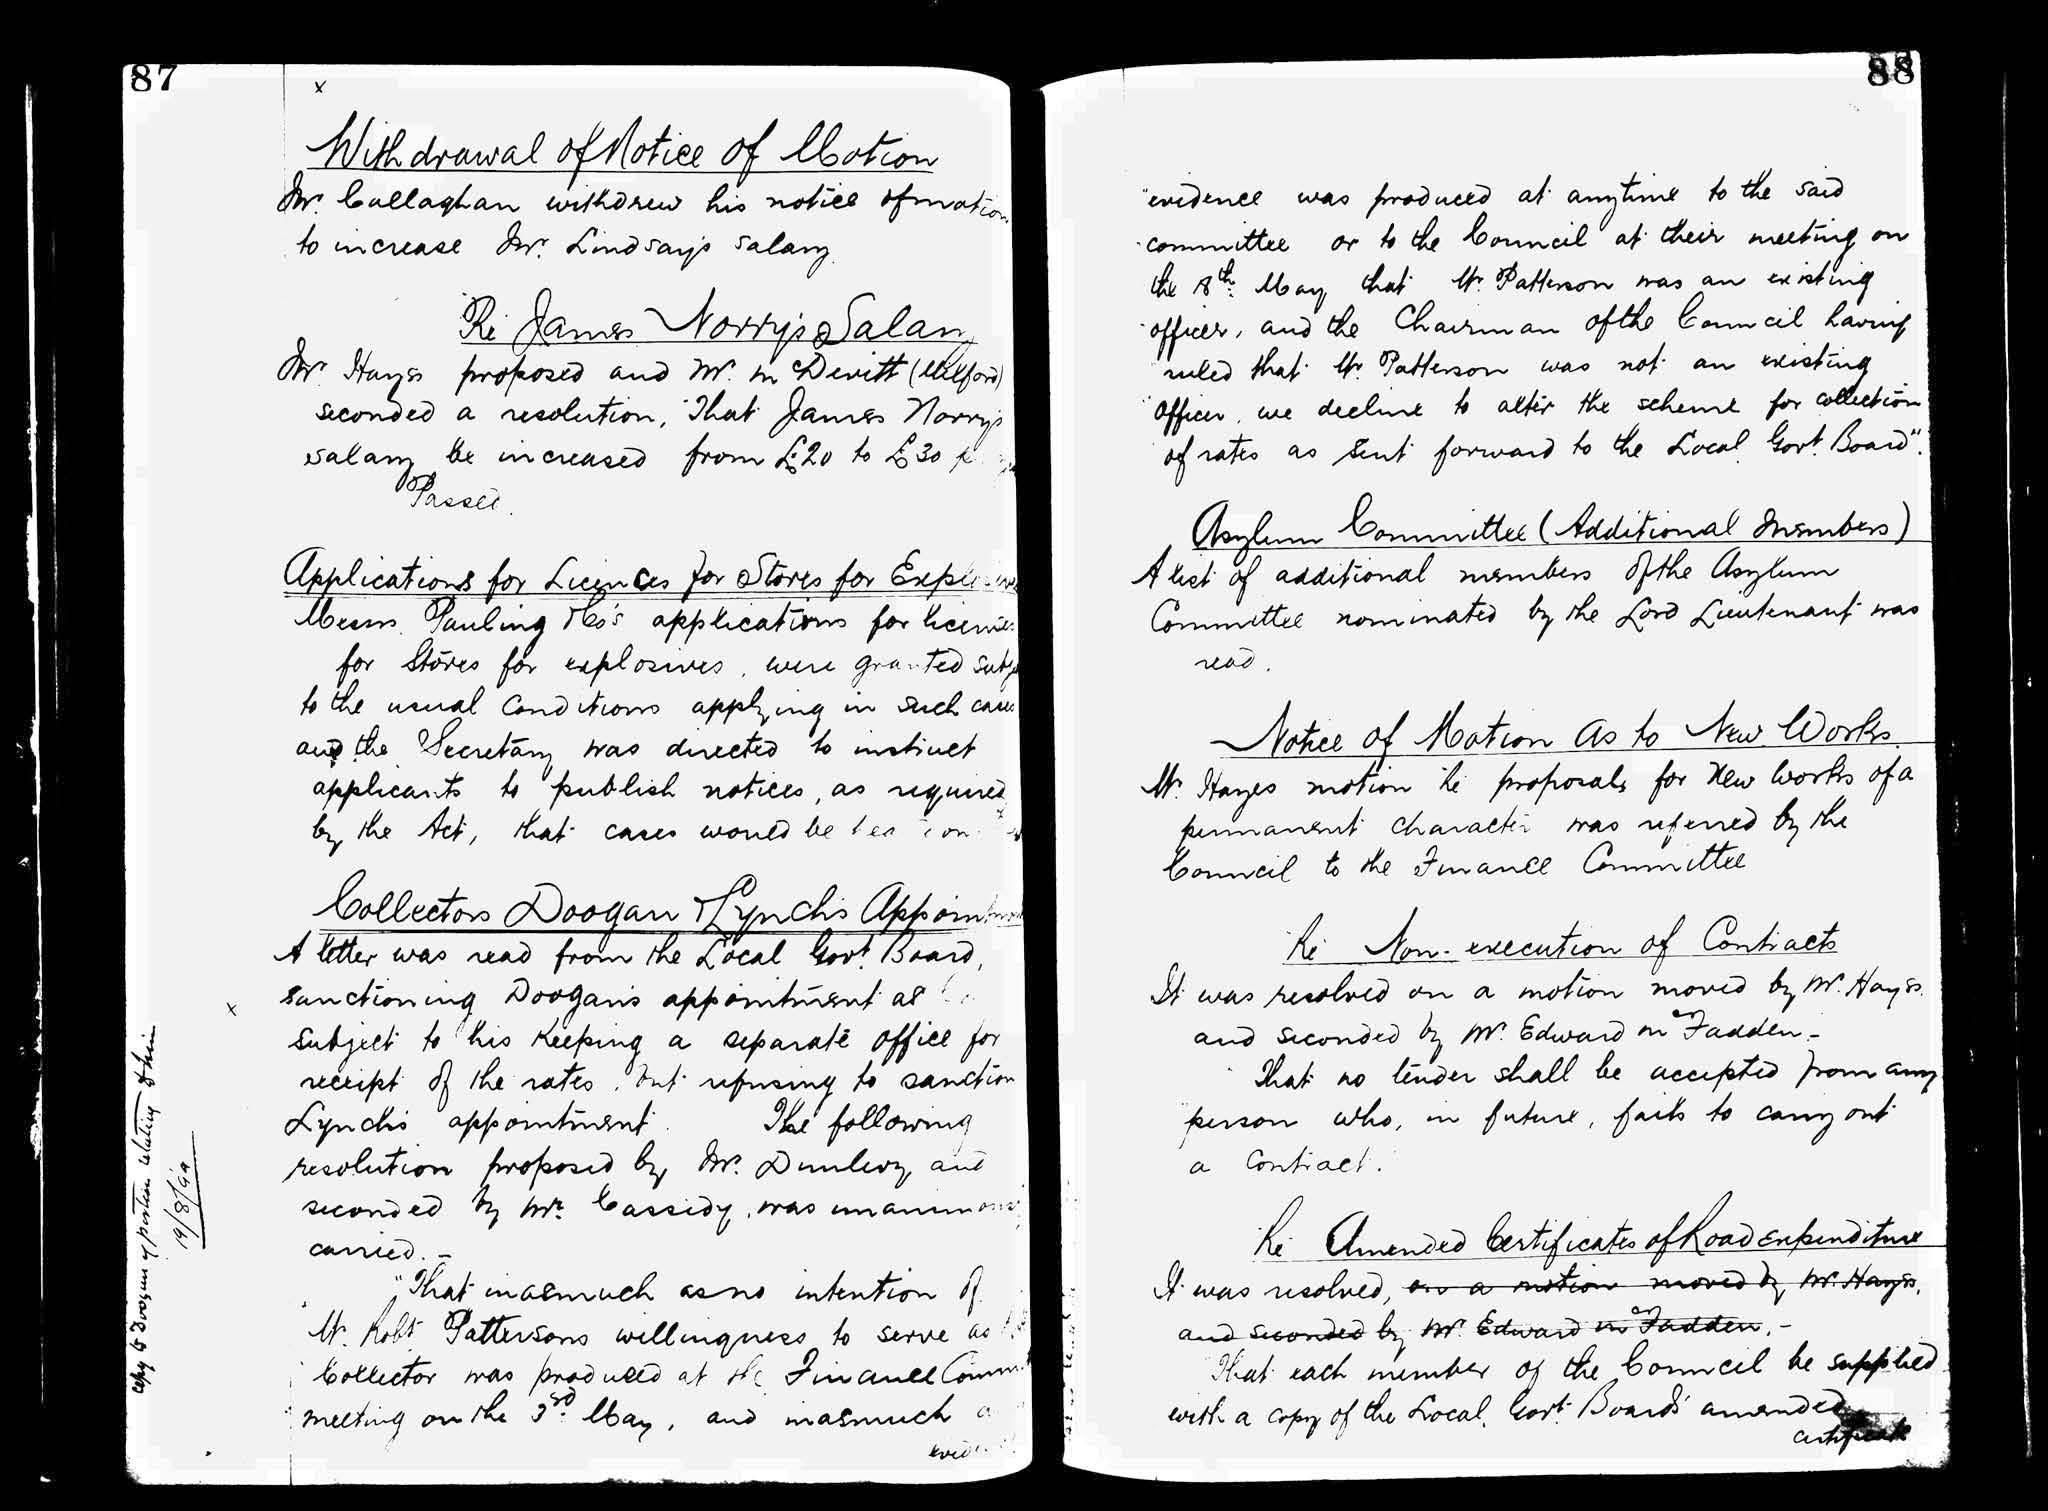 87
x
Withdrawal of Notice of Motion
Mr. Callaghan withdrew his notice of motion
to increase Mr. Lindsay's salary.
Re James Norry's Salary
Mr. Hayes proposed and Mr. McDevitt (Milford)
seconded a resolution, "That James Norry's
salary be increased from £20 to £30
Passed.
Applications for Licences for Stores for Explosives
Messrs. Pauling & Co's applications for licences
for Stores for explosives, were granted subject
to the usual conditions applying in such cases
and the Secretary was directed to instruct
applicants to publish notices, as required
by the Act, that cases would be
Collectors Doogan & Lynch's Appointment
A letter was read from the Local Govt. Board,
x
sanctioning Doogan's appointment as
subject to his keeping a separate office for
receipt of the rates, but refusing to sanction
Lynch's appointment. The following
resolution proposed by Mr. Dunlevy and
seconded by Mr. Cassidy, was unanimously
carried. –
"That inasmuch as no intention of
Mr. Robt. Patterson's willingness to serve as
Collector was produced at the Finance Committee
meeting on the 3rd. May, and inasmuch
copy to Doogan of portion relating to him
19/8/99
88
"evidence was produced at anytime to the said
committee or to the Council at their meeting on
the 18th. May that Mr. Patterson was an existing
officer, and the Chairman of the Council having
ruled that Mr. Patterson was not an existing
Officer, we decline to alter the scheme for collection
of rates as sent forward to the Local Govt. Board".
Asylum Committee (Additional Members)
A list of additional members of the Asylum
Committee nominated by the Lord Lieutenant was
read.
Notice of Motion as to New Works.
Mr. Hayes motion re proposals for New Works of a
permanent character was referred by the
Council to the Finance Committee
Re Non-execution of Contracts
It was resolved on a motion moved by Mr. Hayes.
and seconded by Mr. Edward McFadden. –
"That no tender shall be accepted from any
person who, in future, fails to carry out
a contract.
Re Amended Certificates of Road expenditure
It was resolved, on a motion moved by Mr. Hayes,
and seconded by Mr. Edward McFadden. –
That each member of the Council be supplied
with a copy of the Local Govt. Board's amended
certificate